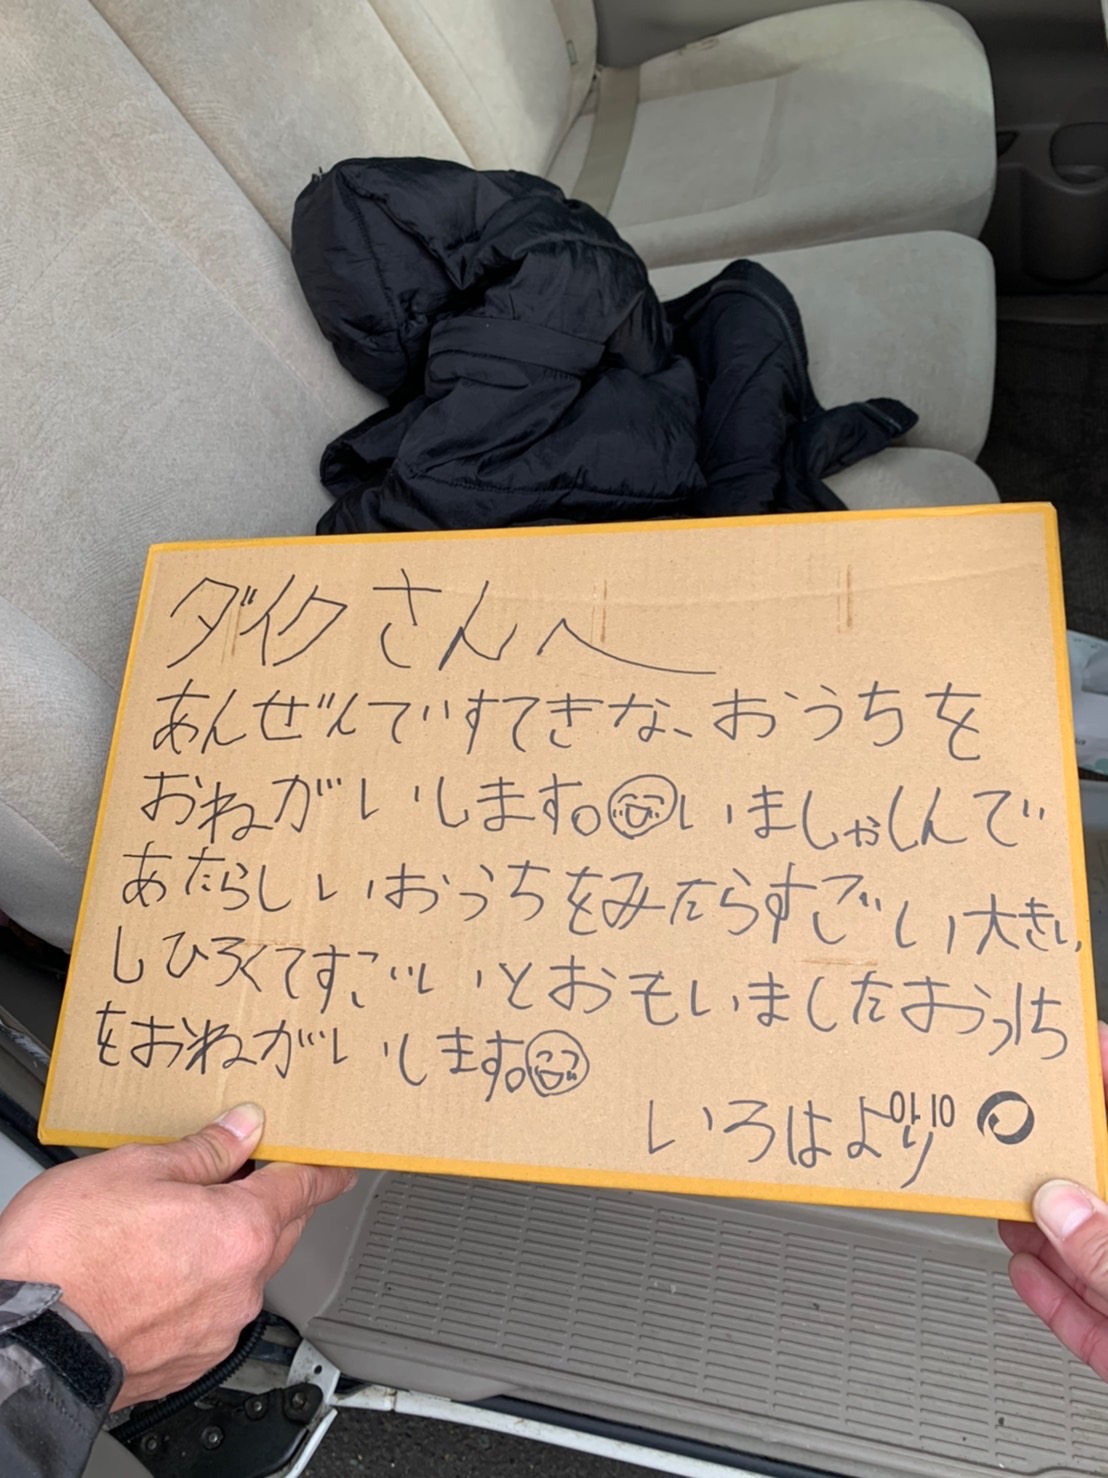 ダイクさんへ
あんぜんですてきな、おうちを
おねがいします。いましゃしんで
あたらしいおうちをみたらすごい大きい
しひろくてすごいいとおもいましたおうち
をおねがいします。
いろはより